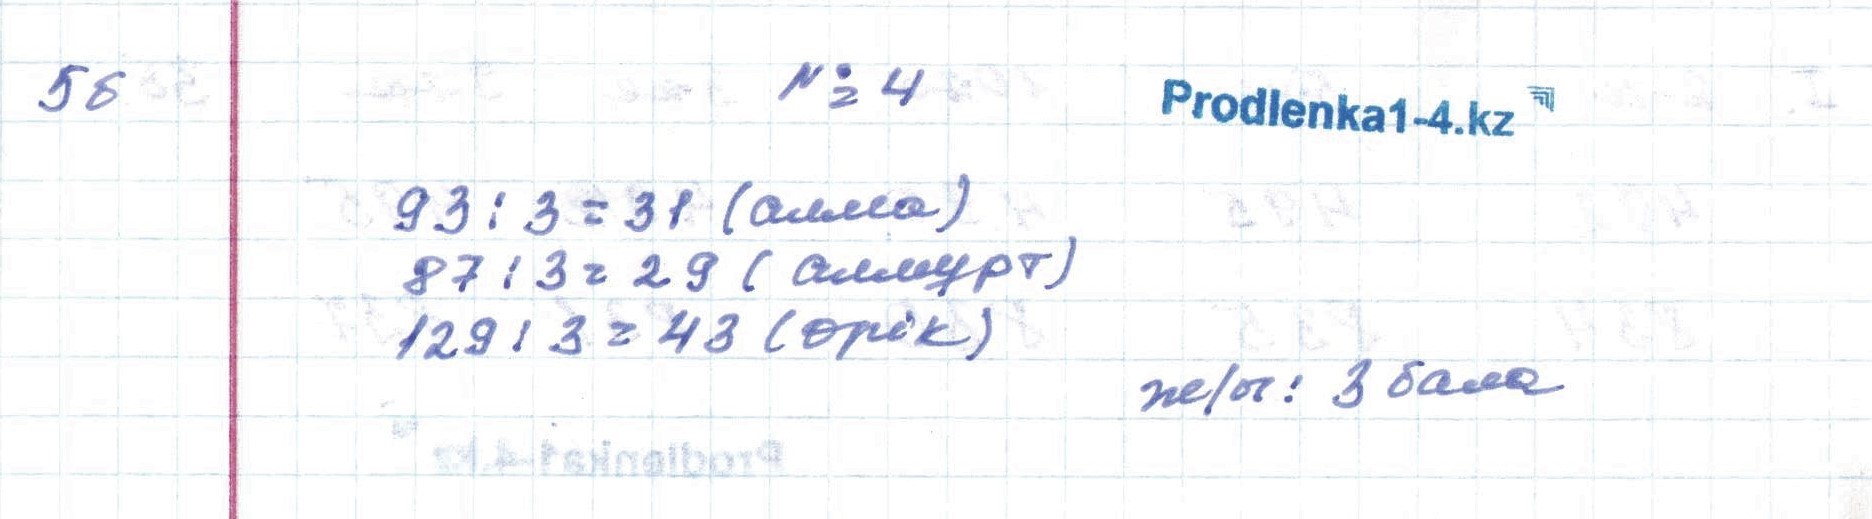 5б № 4 Prodlenka1-4.kz
93 : 3 = 31 (алма)
87 : 3 = 29 (алмұрт)
129 : 3 = 43 (өрік)
ж/ы: 3 бала
Prodlenka1-4.kz